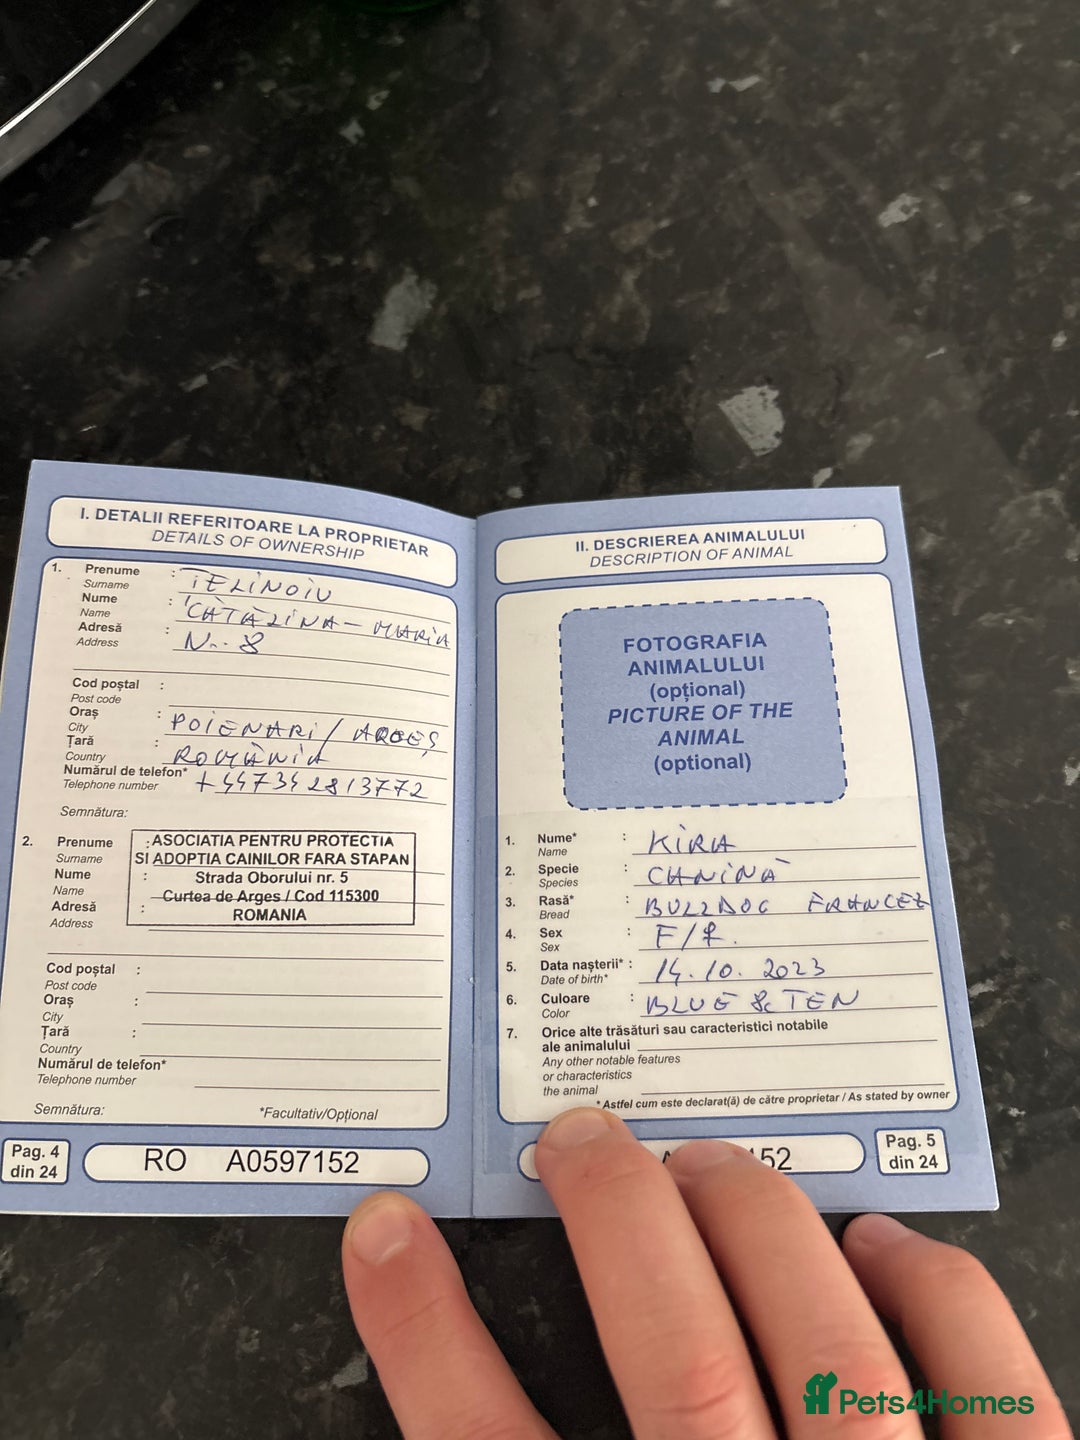 I. DETALII REFERITOARE LA PROPRIETAR
DETAILS OF OWNERSHIP
1. Prenume :
Surname
Nume : CĂTĂLINA-MARIA
Name
Adresă : N.. 8
Address
Cod poștal :
Post code
Oraș : POIENARI / ARGEȘ
City
Țară : ROMÂNIA
Country
Numărul de telefon* +447342813772
Telephone number
Semnătura:
2. Prenume : ASOCIATIA PENTRU PROTECTIA
Surname SI ADOPTIA CAINILOR FARA STAPAN
Nume : Strada Oborului nr. 5
Name Curtea de Arges / Cod 115300
Adresă : ROMANIA
Address
Cod poștal :
Post code
Oraș :
City
Țară :
Country
Numărul de telefon*
Telephone number
Semnătura: *Facultativ/Opțional
Pag. 4
din 24
RO A0597152
II. DESCRIEREA ANIMALULUI
DESCRIPTION OF ANIMAL
FOTOGRAFIA
ANIMALULUI
(opțional)
PICTURE OF THE
ANIMAL
(optional)
1. Nume* : KIRA
Name
2. Specie : CANINĂ
Species
3. Rasă* : BULLDOG FRANCEZ
Bread
4. Sex : F/♀.
Sex
5. Data nașterii* : 14.10.2023
Date of birth*
6. Culoare : BLUE & TEN
Color
7. Orice alte trăsături sau caracteristici notabile
ale animalului
Any other notable features
or characteristics
the animal
* Astfel cum este declarat(ă) de către proprietar / As stated by owner
52
Pag. 5
din 24
Pets4Homes